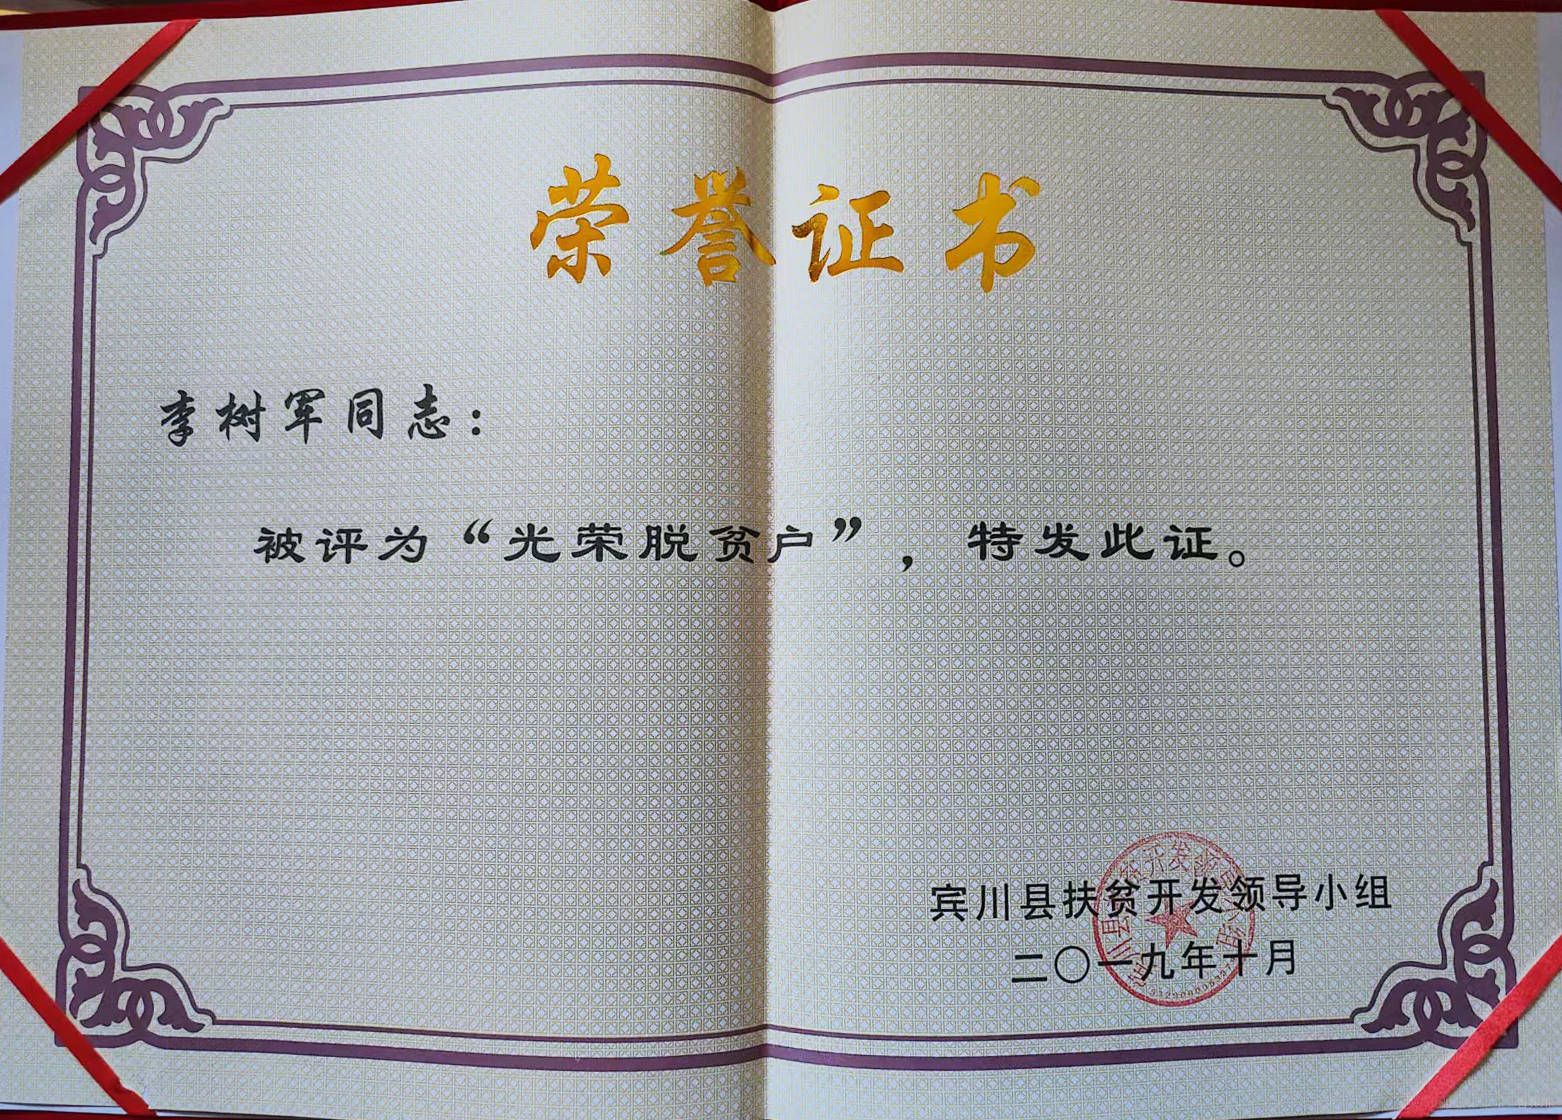 荣誉证书
李树军同志：
被评为“光荣脱贫户”，特发此证。
宾川县扶贫开发领导小组
二〇一九年十月